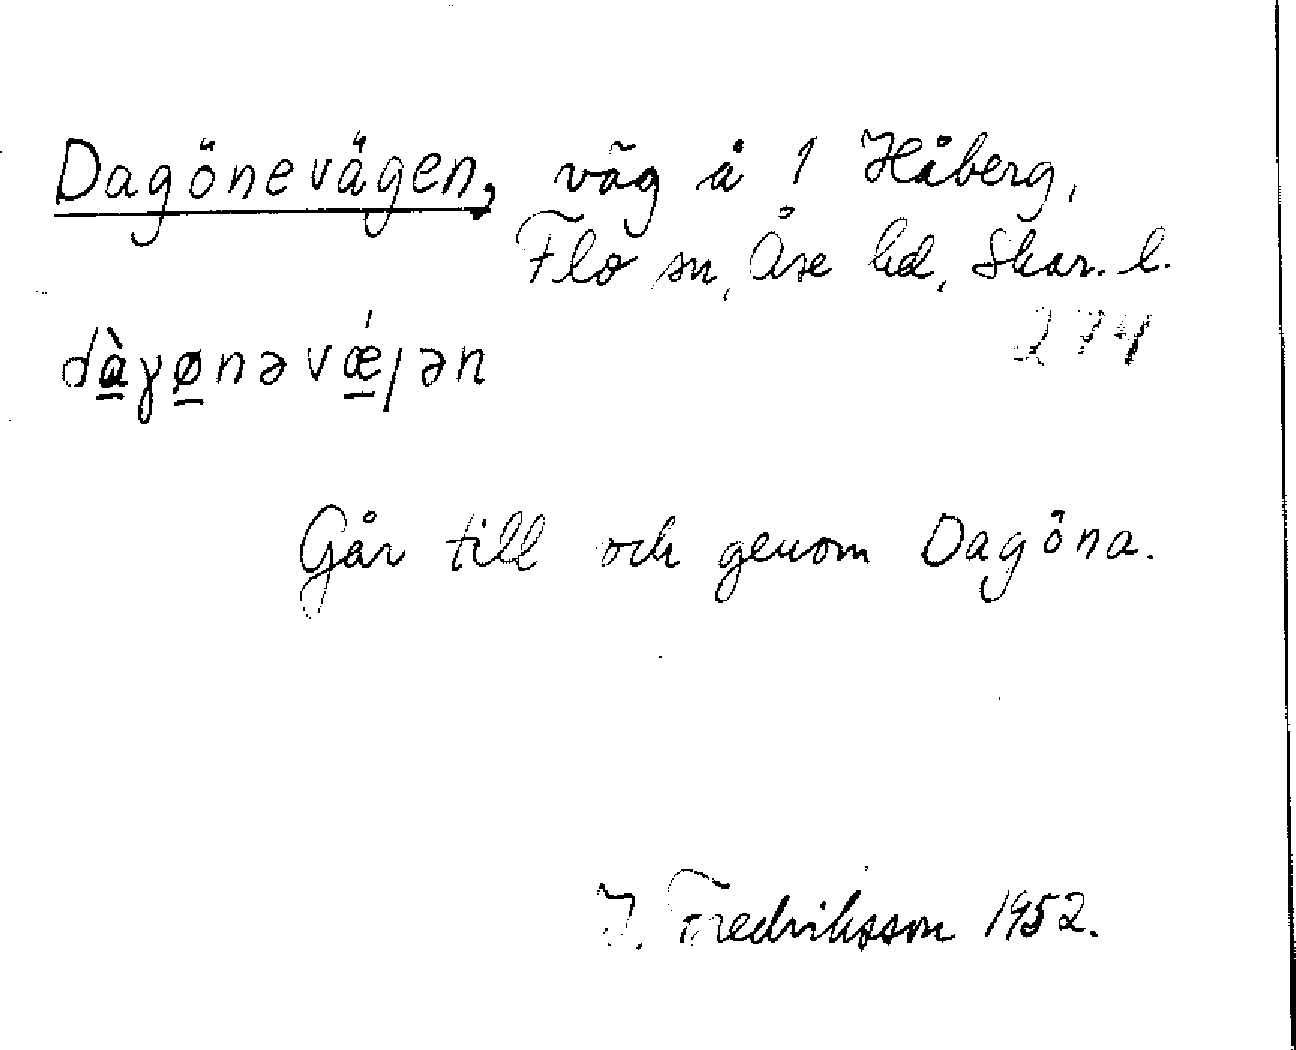 Dagönevägen, väg å 1 Håberg,
Flo sn, Åse hd, Skar. l.
274
dàɣønəvǽjən
Går till och genom Dagöna.
I. Fredriksson 1952.